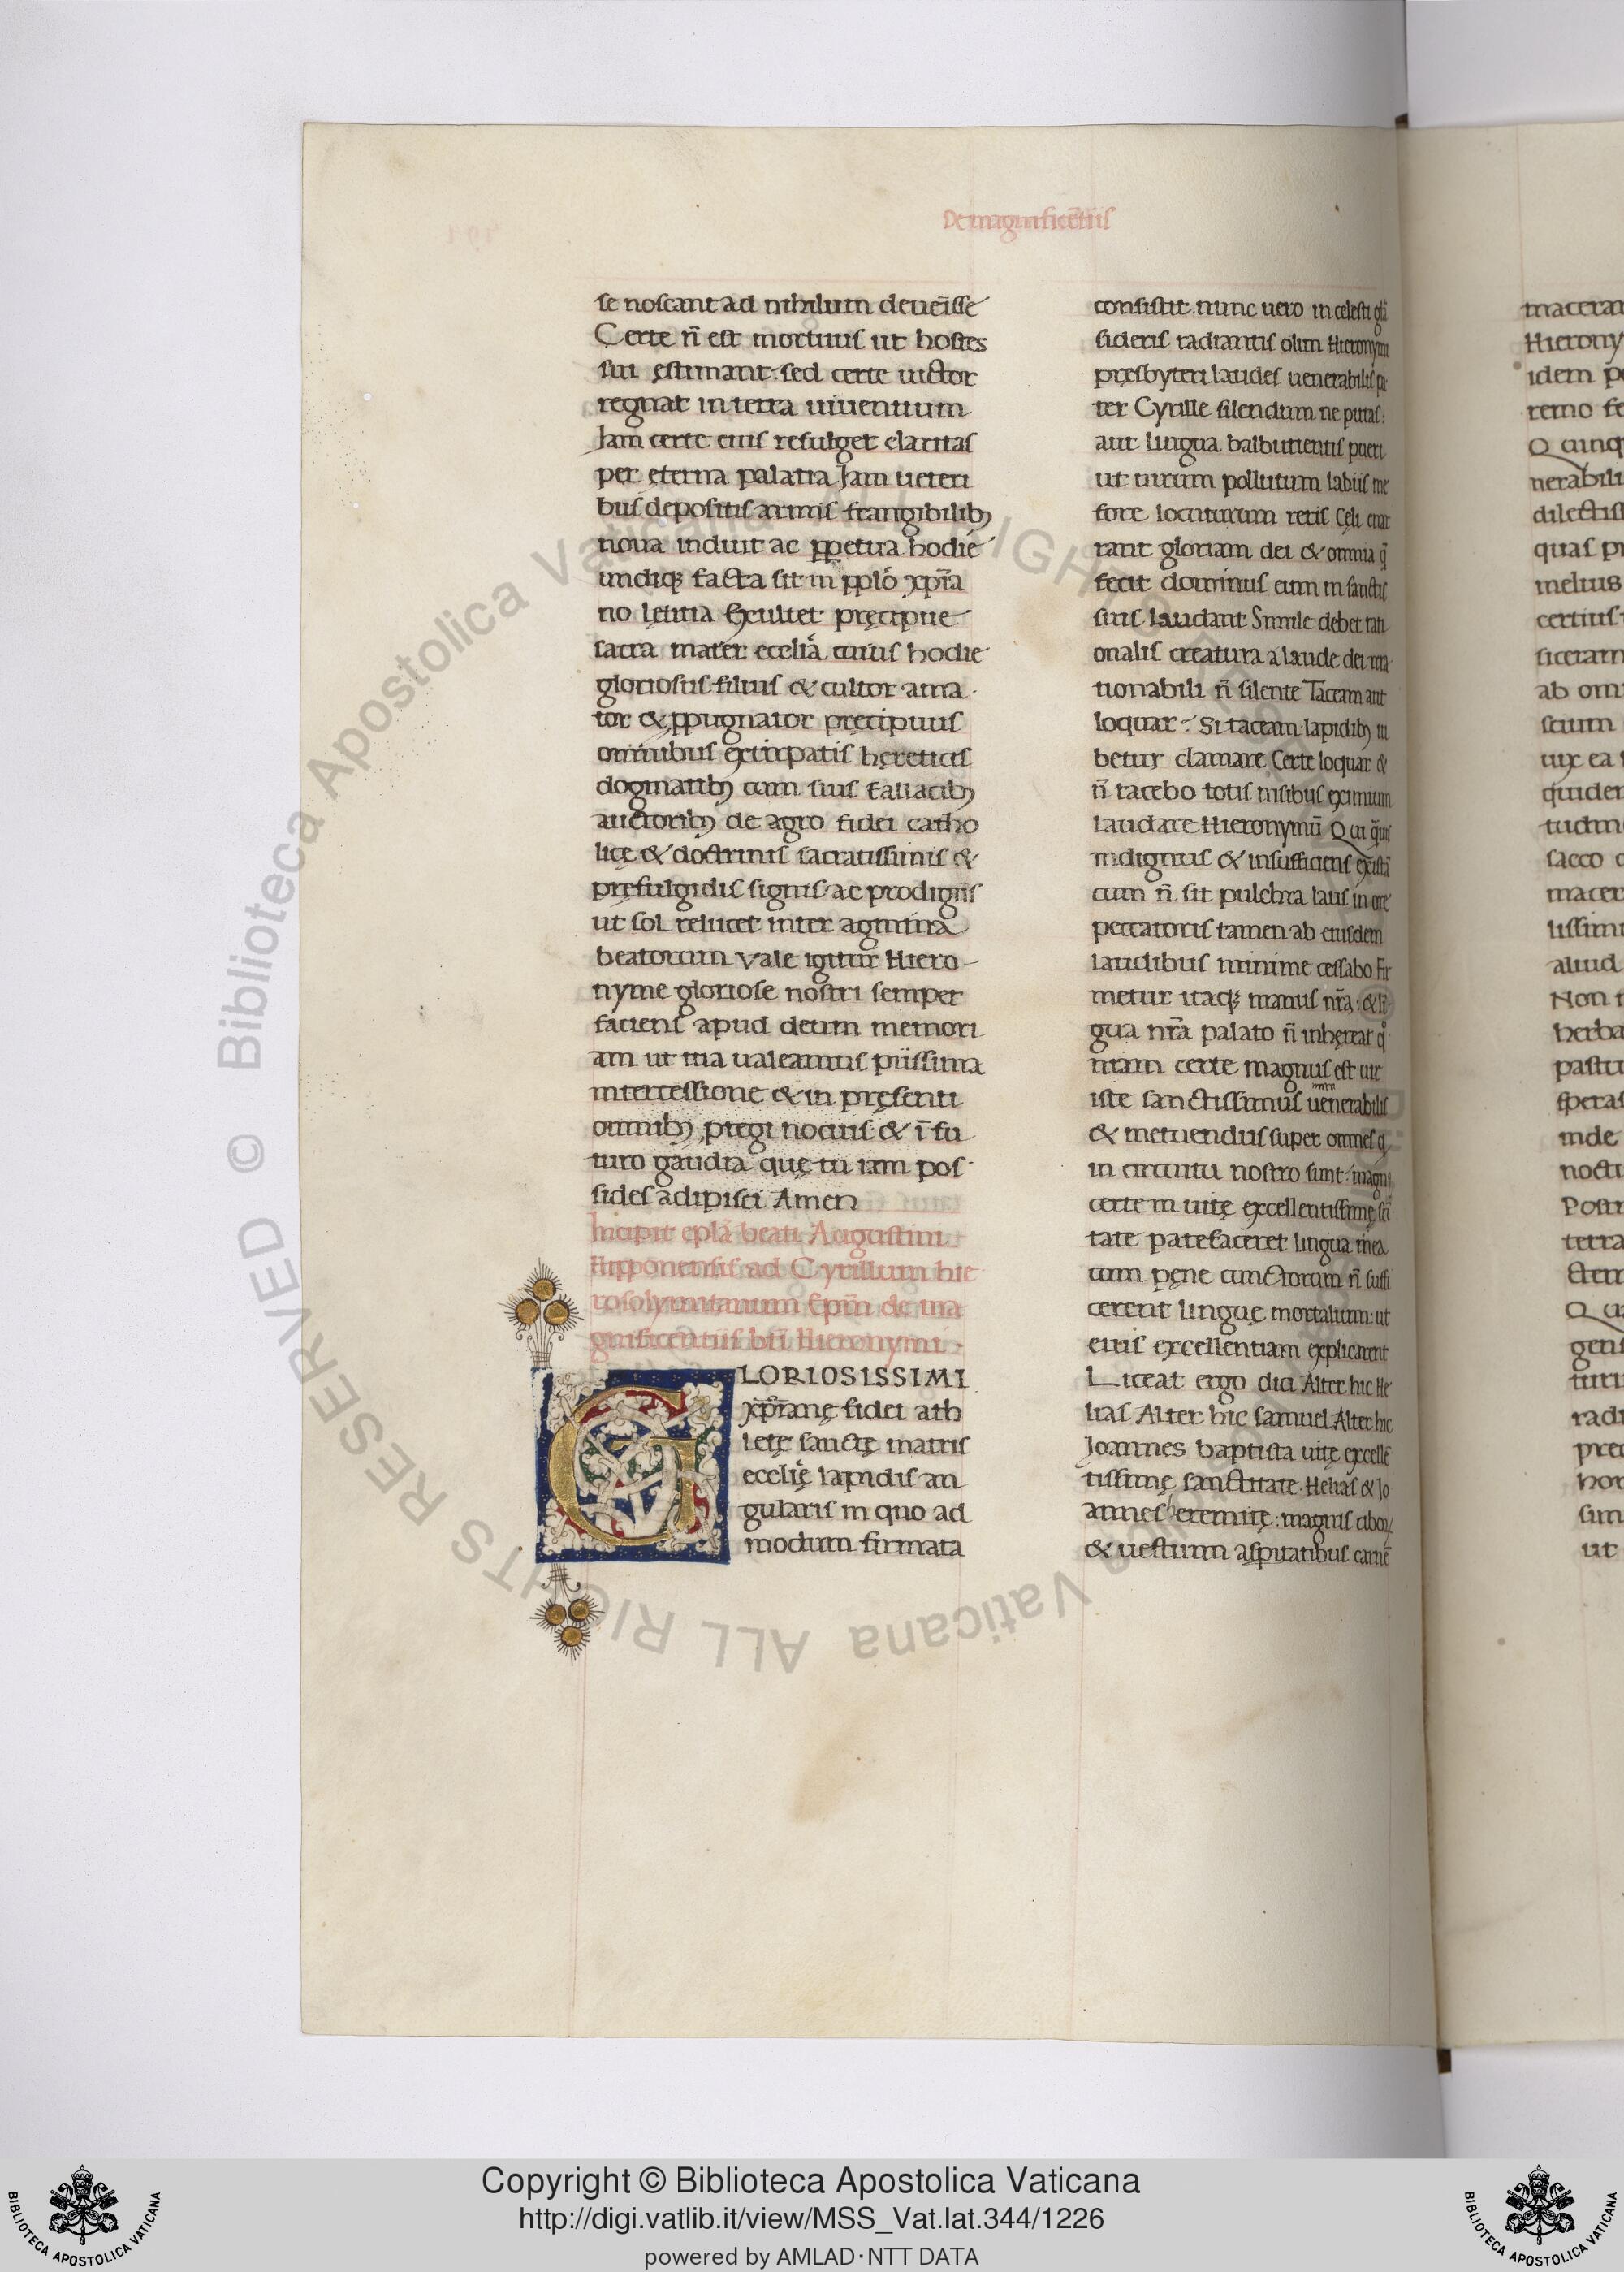 De magnificẽtiis
se noscant ad nihilum deueĩsse
Certe ñ est mortuus ut hostes
sui ęstimant: sed certe uictor
regnat in terra uiuentium
Jam certe eius refulget claritas
per eterna palatia Jam ueteri
bus depositis armis frangibilibꝫ
noua induit ac ꝑpetua hodie
undiqꝫ facta sit in pplo xp̃ia
no lętitia Exultet pręcipue
sacra mater ecclia cuius hodie
gloriosus filius & cultor ama
tor & ꝓpugnator pręcipuus
omnibus extirpatis hęreticis
dogmatibꝫ cum suis fallacibꝫ
auctoribꝫ de agro fidei catho
licę & doctrinis sacratissimis &
pręfulgidis signis ac prodigiis
ut sol relucet inter agmina
beatorum Vale igitur Hiero
nyme gloriose nostri semper
faciens apud deum memori
am ut tua ualeamus piissima
intercessione & in pręsenti
omnibꝫ pregi nociuis & ĩ fu
turo gaudia quę tu iam pos
sides adipisci Amen
Incipit epla beati Augustini
Hipponensis ad Cyrillum hie
rosolymitanum Epm̃ de ma
gnificentiis bti Hieronymi
GLORIOSISSIMI
xp̃ianę fidei ath
letę sanctę matris
ecclię lapidis an
gularis in quo ad
modum firmata
consistit. nunc uero in celesti glã
sideris radiantis olim Hieronymi
pręsbyteri laudes uenerabilis pa
ter Cyrille silendum ne putas:
aut lingua balbutientis pueri
ut uirum pollutum labiis me
fore locuturum retis Cęli enar
rant gloriam dei & omnia q̃
fecit dominus eum in sanctis
suis laudant Simile debet rati
onalis creatura a laude dei irra
tionabili ñ silente Taceam aut
loquar? Si taceam lapidibꝫ iu
betur clamare Certe loquar &
ñ tacebo totis nisibus eximium
laudare Hieronymũ Qui q̃uis
indignus & insufficiens existã
cum ñ sit pulchra laus in ore
peccatoris tamen ab eiusdem
laudibus minime cessabo Fir
metur itaqꝫ manus nr̃a: & li
gua nr̃a palato ñ inhęreat qͦ
niam certe magnus est uir
iste sanctissimus uenerabilis
& metuendus super omnes q
in circuitu nostro sunt: magn
certe in uitę excellentissimę sã
tate patefaceret lingua mea
cum pęne cunctorum ñ suffi
cerent linguę mortalium: ut
eius excellentiam explicarent
Liceat ergo dici Alter hic He
lias Alter hic Samuel Alter hic
Joannes baptista uitę excellẽ
tissimę sanctitate. Helias & Jo
annes heremitę: magnis ciboꝝ
& uestium aspitatibus carnẽ
Copyright © Biblioteca Apostolica Vaticana
http://digi.vatlib.it/view/MSS_Vat.lat.344/1226
powered by AMLAD·NTT DATA
BIBLIOTECA APOSTOLICA VATICANA
BIBLIOTECA APOSTOLICA VATICANA
© Biblioteca Apostolica Vaticana ALL RIGHTS RESERVED